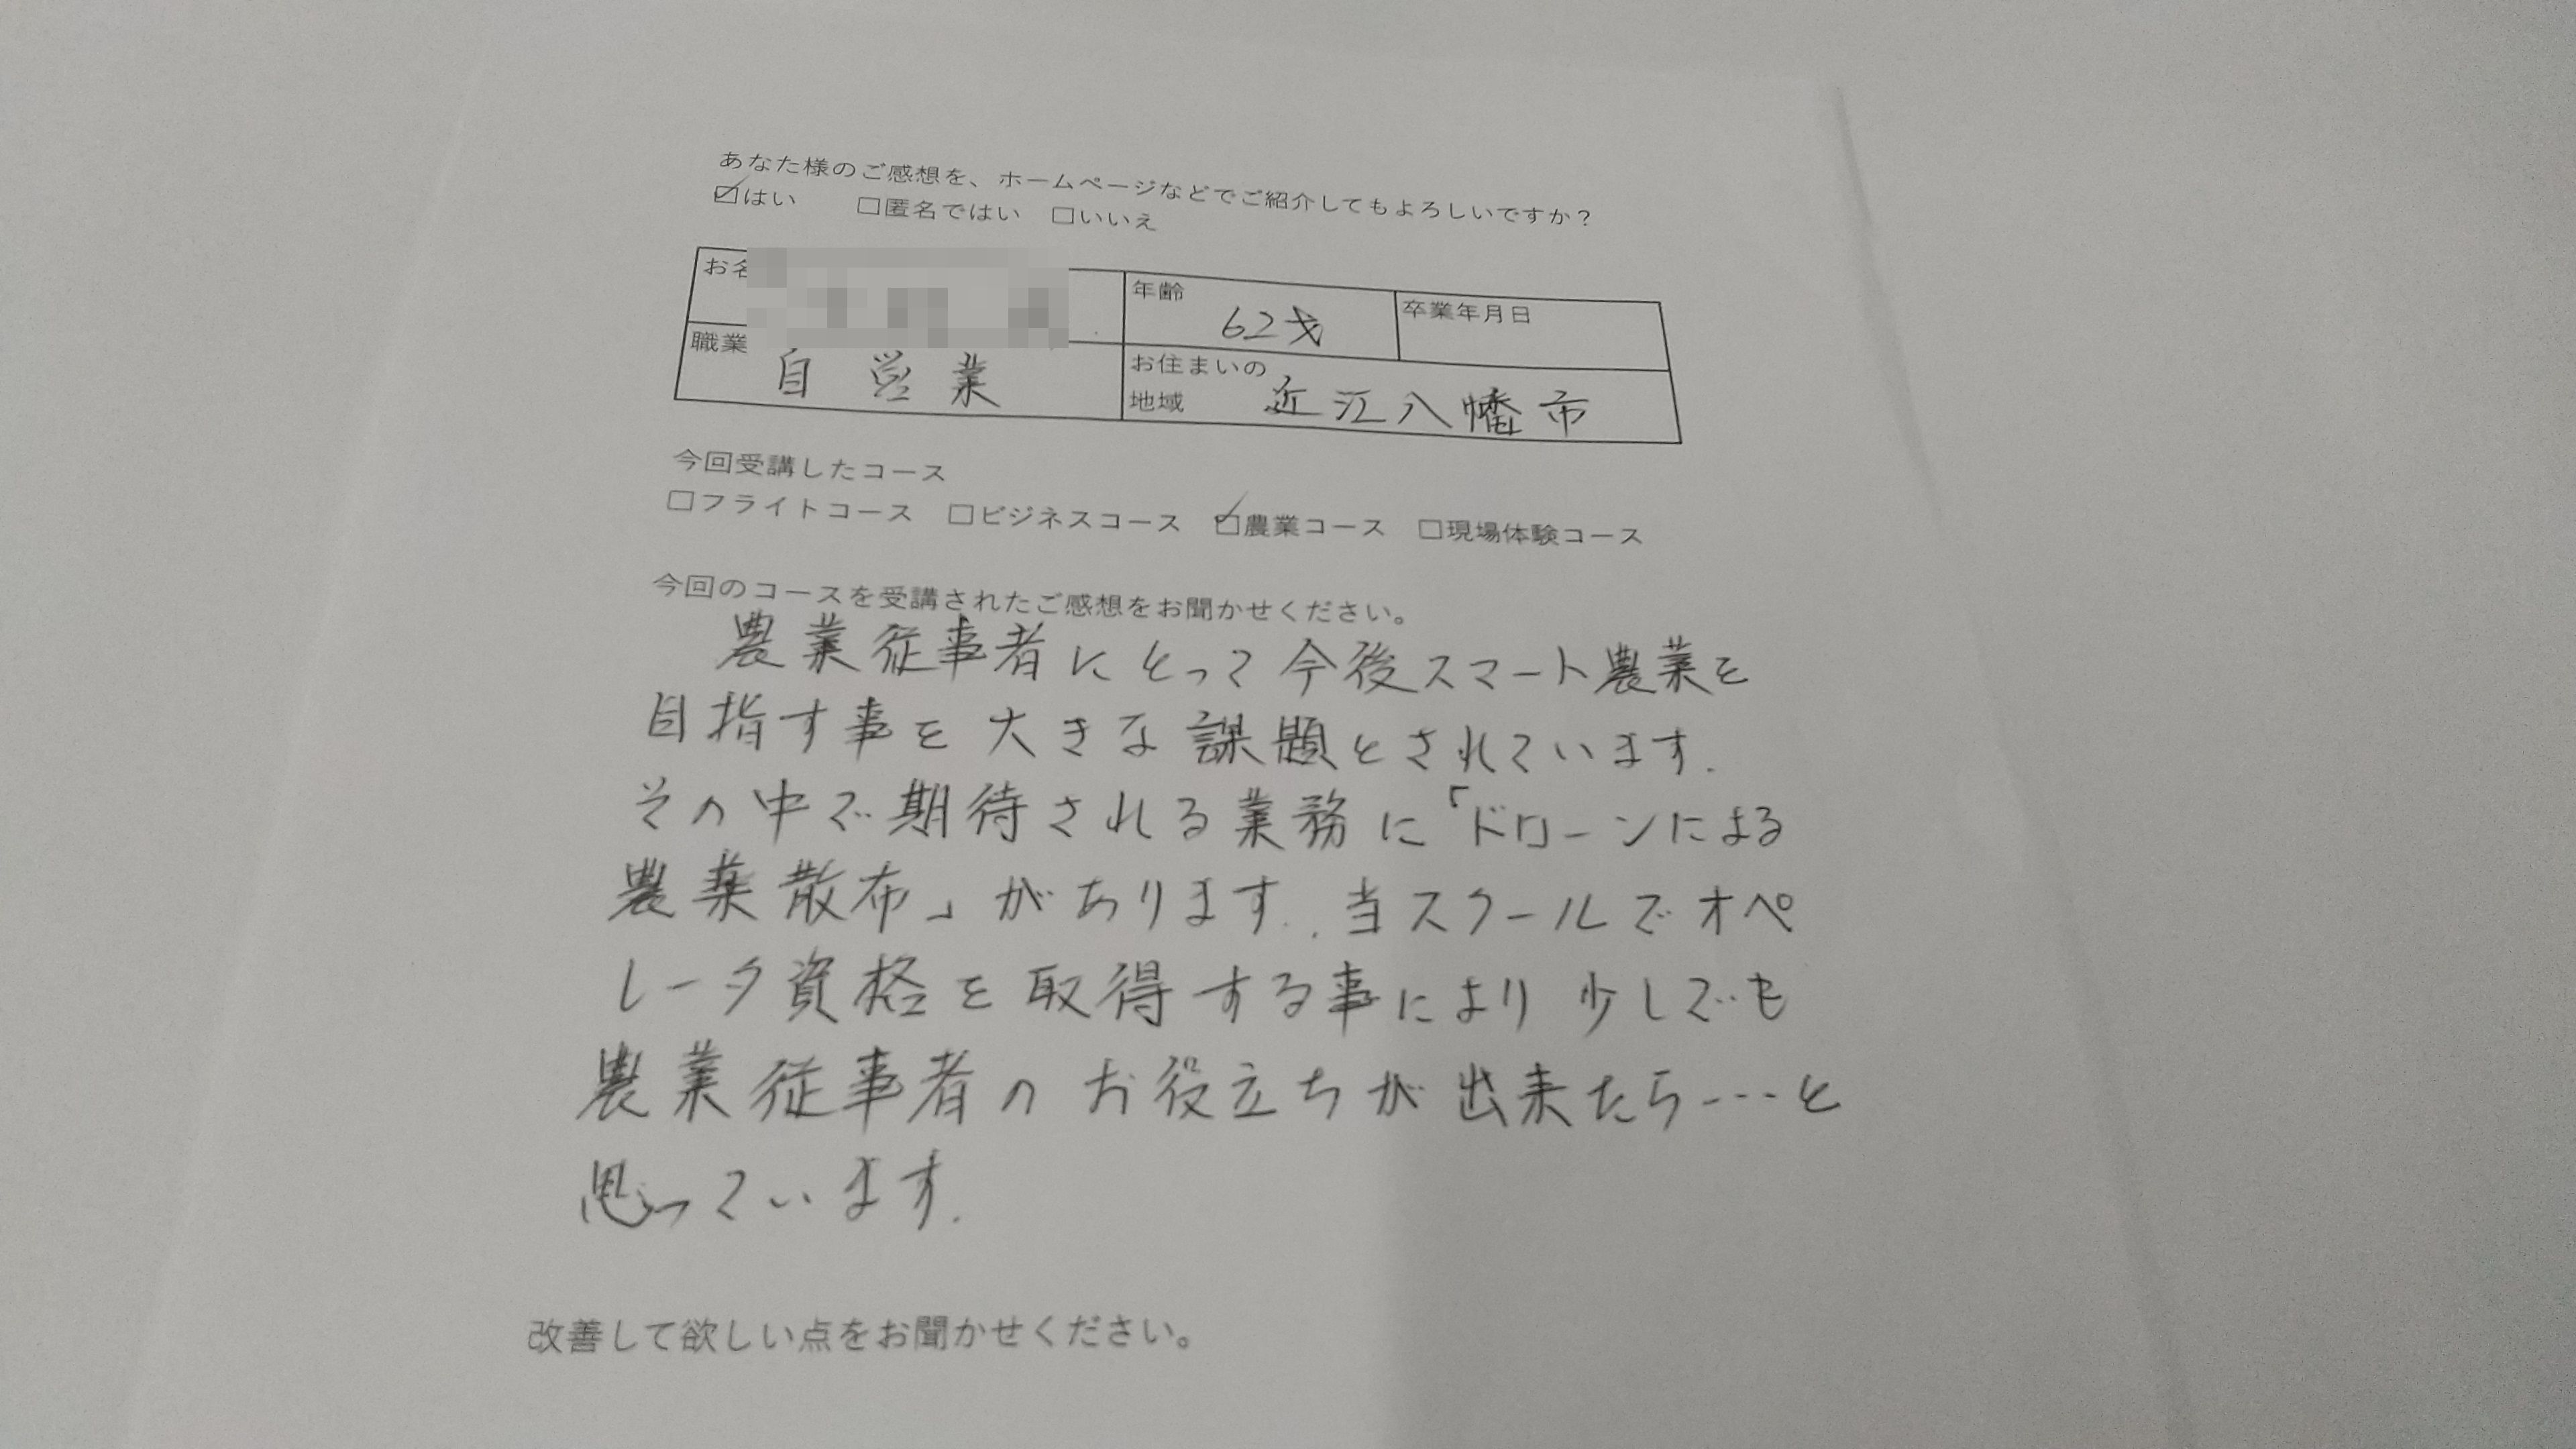 あなた様のご感想を、ホームページなどでご紹介してもよろしいですか？
☑はい　□匿名ではい　□いいえ
お名
年齢 62才 卒業年月日
職業 自営業 お住まいの
地域 近江八幡市
今回受講したコース
□フライトコース　□ビジネスコース　☑農業コース　□現場体験コース
今回のコースを受講されたご感想をお聞かせください。
農業従事者にとって今後スマート農業を
目指す事を大きな課題とされています.
その中で期待される業務に「ドローンによる
農薬散布」があります. 当スクールでオペ
レータ資格を取得する事により少しでも
農業従事者のお役立ちが出来たら…と
思っています.
改善して欲しい点をお聞かせください。